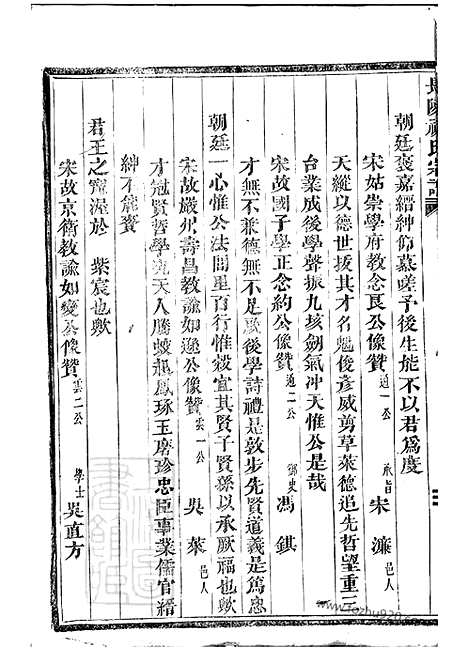 朝廷褒嘉縉紳仰慕嗟予後生能不以君爲度
宋姑崇學府教念良公像贊 道一公 承旨 宋濂 邑人
天縱以德世拔其才名魁俊彥威剪草萊德追先哲望重三
台業成後學聲振九垓劍氣冲天惟公是哉
宋故國子學正念約公像贊 道二公 馮錤
才無不兼德無不足歌後學詩禮是敦步先賢道義是爲惠
朝廷一心惟公法閭里百行惟穀宜其賢子賢孫以承厥福也歟
宋故嚴州壽昌教諭如遜公像贊 雲一公 吳萊 邑人
才冠賢哲學究天人騰蛟起鳳琢玉磨珍忠臣事業儒官縉
紳不能贊
君王之寵渥於 紫宸也歟
宋故京衛教諭如變公像贊 雲二公 學士 吳直方